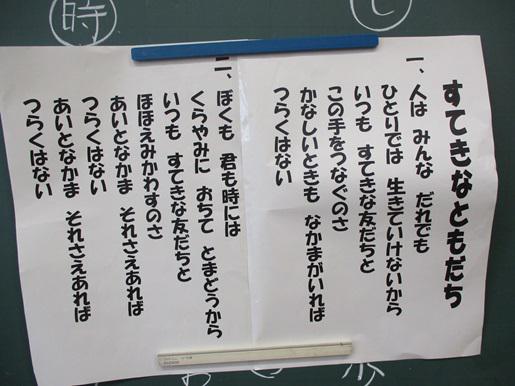 時
し
すてきなともだち
一、人は みんな だれでも
ひとりでは 生きていけないから
いつも すてきな友だちと
この手をつなぐのさ
かなしいときも なかまがいれば
つらくはない
二、ぼくも 君も時には
くらやみに おちて とまどうから
いつも すてきな友だちと
ほほえみかわすのさ
あいとなかま それさえあれば
つらくはない
あいとなかま それさえあれば
つらくはない